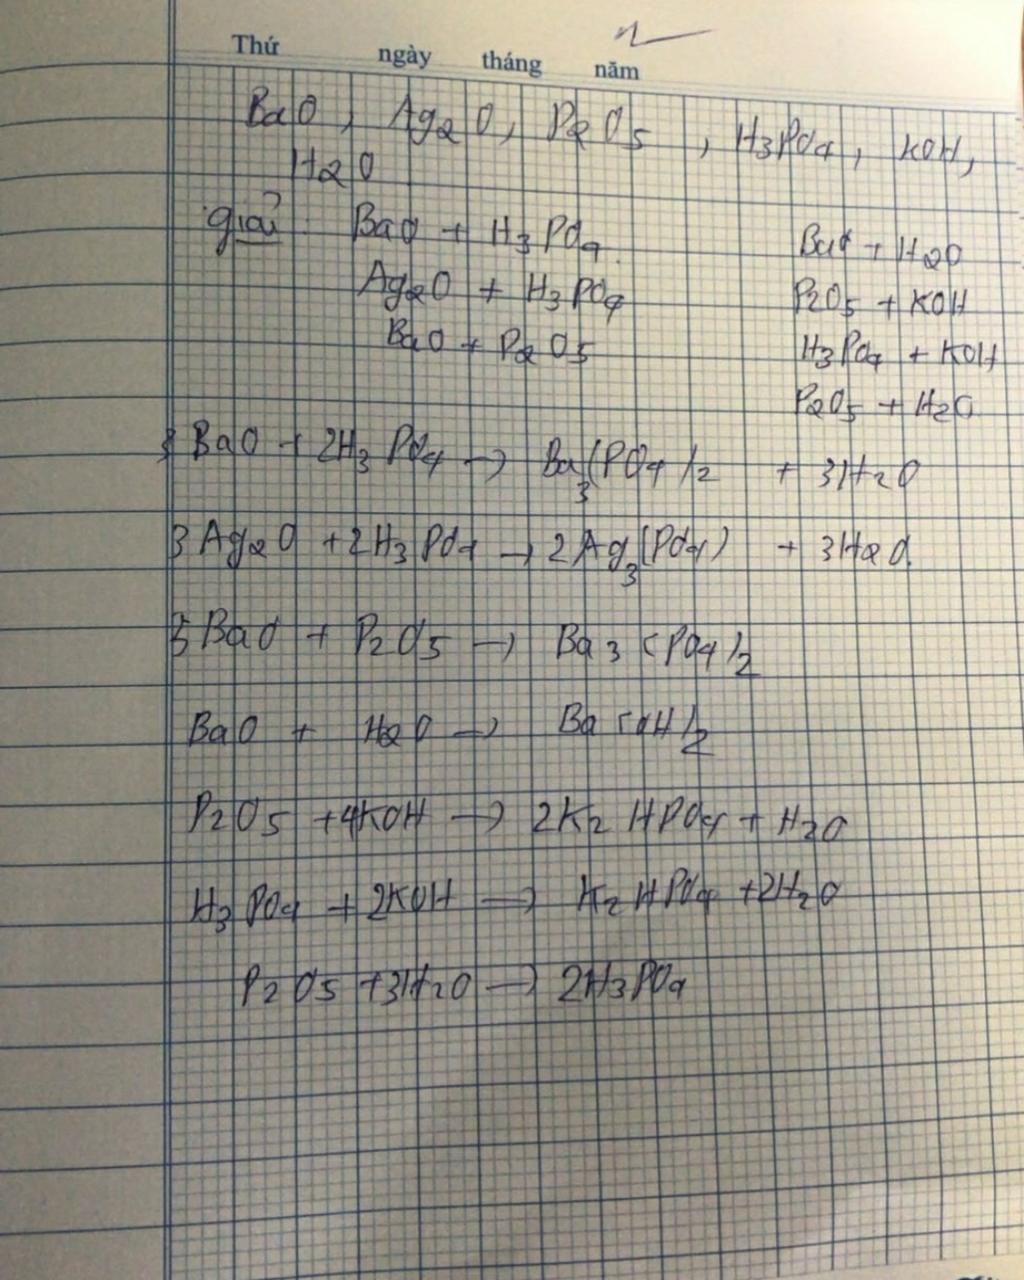 Thứ ngày tháng năm
BaO, Ag2O, P2O5, H3PO4, KOH,
H2O
giải: BaO + H3PO4
Ag2O + H3PO4
BaO + P2O5
BaO + H2O
P2O5 + KOH
H3PO4 + KOH
P2O5 + H2O
3BaO + 2H3PO4 → Ba3(PO4)2 + 3H2O
3Ag2O + 2H3PO4 → 2Ag3(PO4) + 3H2O
3BaO + P2O5 → Ba3(PO4)2
BaO + H2O → Ba(OH)2
P2O5 + 4KOH → 2K2HPO4 + H2O
H3PO4 + 2KOH → K2HPO4 + 2H2O
P2O5 + 3H2O → 2H3PO4